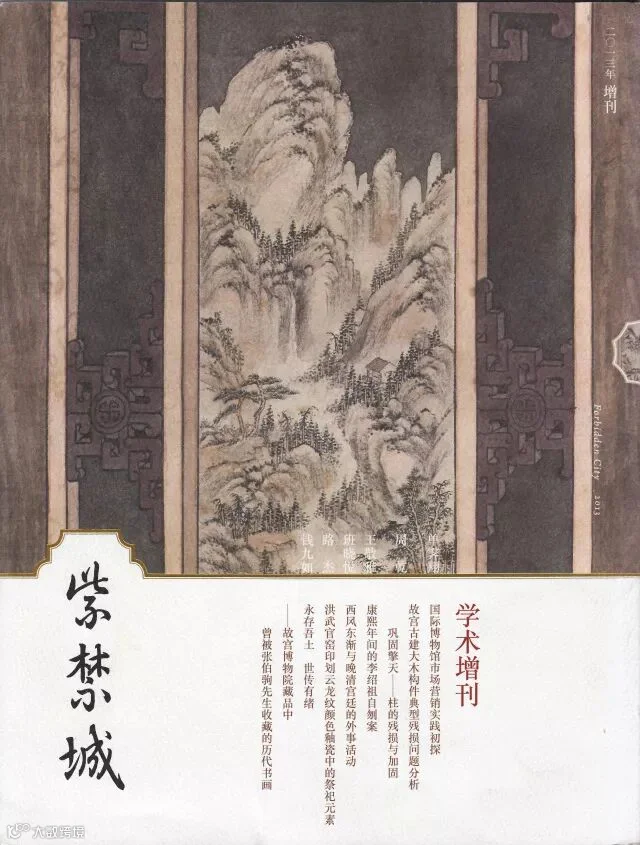 二〇一三年 增刊
Forbidden City 2013
单霁翔
周乾
王敬雅
班晓悦
路杰
钱九如
学术增刊
国际博物馆市场营销实践初探
故宫古建大木构件典型残损问题分析
巩固擎天——柱的残损与加固
康熙年间的李绍祖自刎案
西风东渐与晚清宫廷的外事活动
洪武官窑印划云龙纹颜色釉瓷中的祭祀元素
永存吾土 世传有绪
——故宫博物院藏品中
曾被张伯驹先生收藏的历代书画
紫禁城
大数跨境